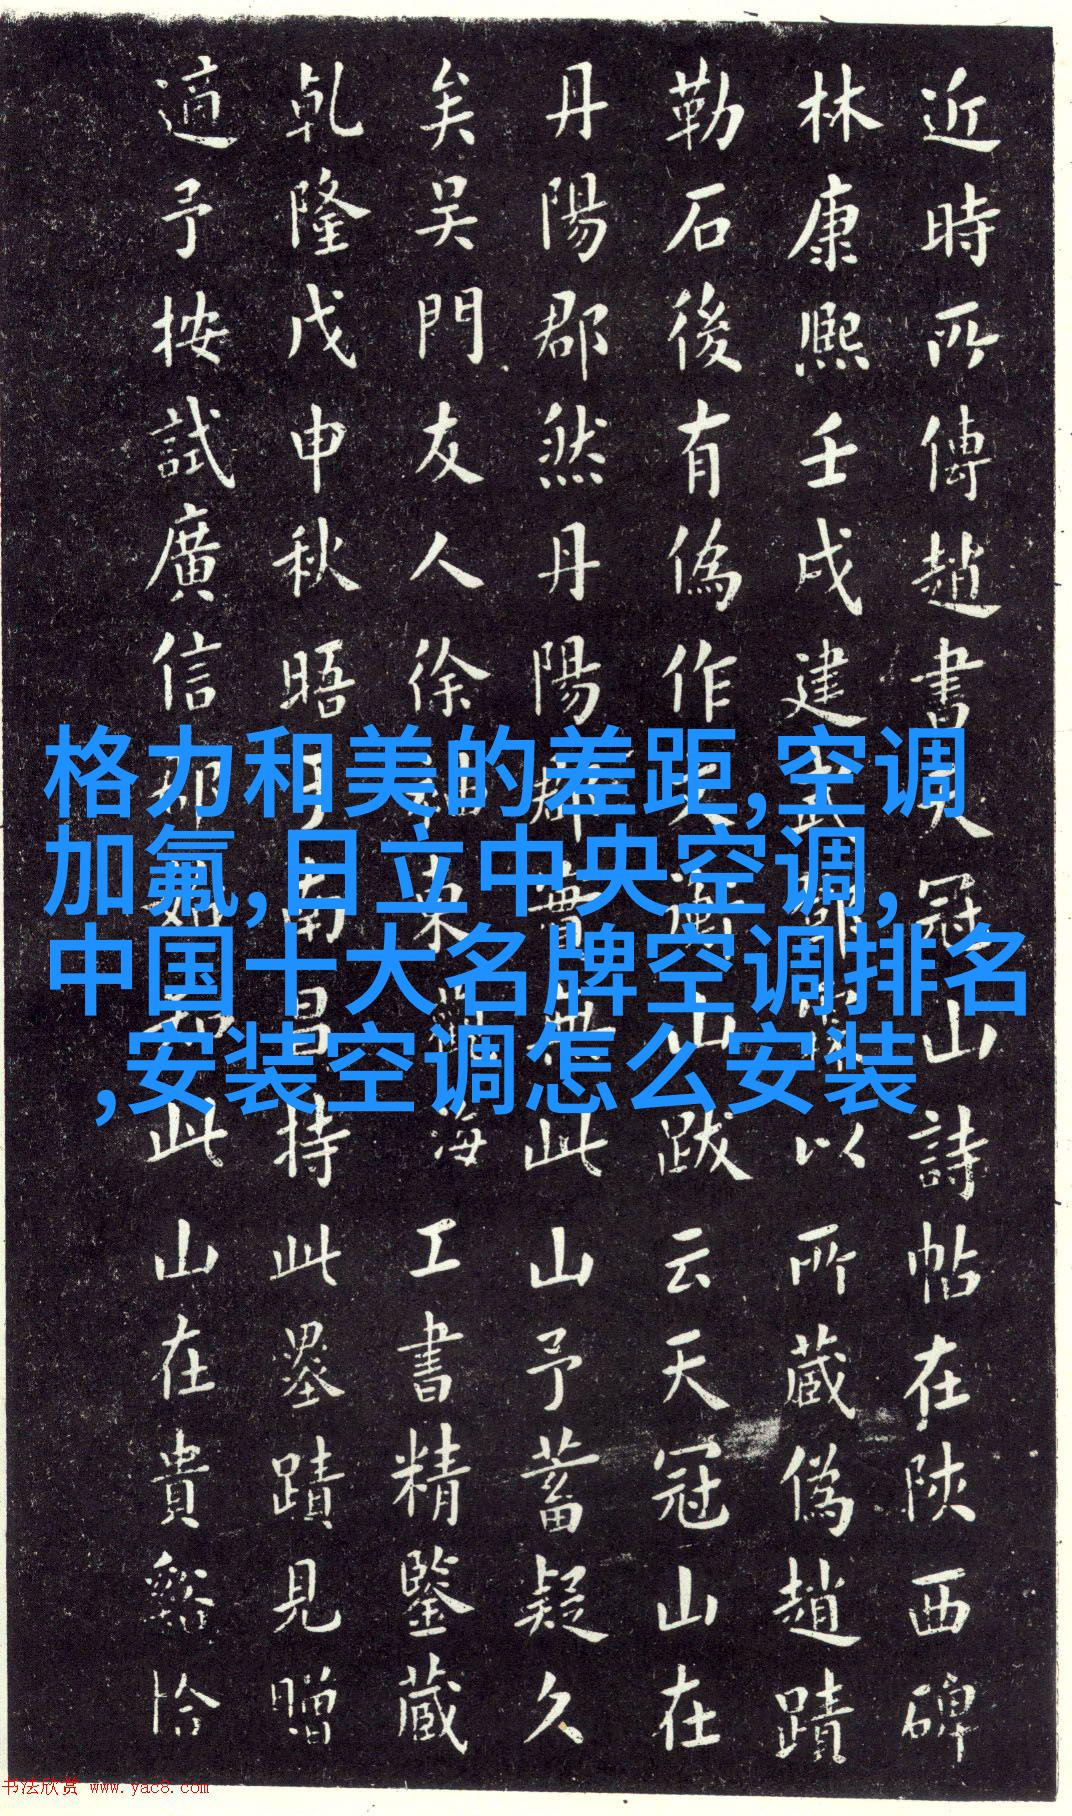 近時所傳趙書天冠山詩帖在陝西碑
林康熙壬戌建武以所藏偽趙蹟
勒石後有偽作文衡山跋云天冠山在
丹陽郡然丹陽郡實無此山予蓄疑久
矣吳門友人徐東海工書精鑒藏
乾隆戊申秋晤于南昌持此墨蹟見贈
適予按試廣信郡始知此山在貴谿恰
格力和美的差距,空调
加氟,日立中央空调,
中国十大名牌空调排名
,安装空调怎么安装
书法欣赏 www.yac8.com